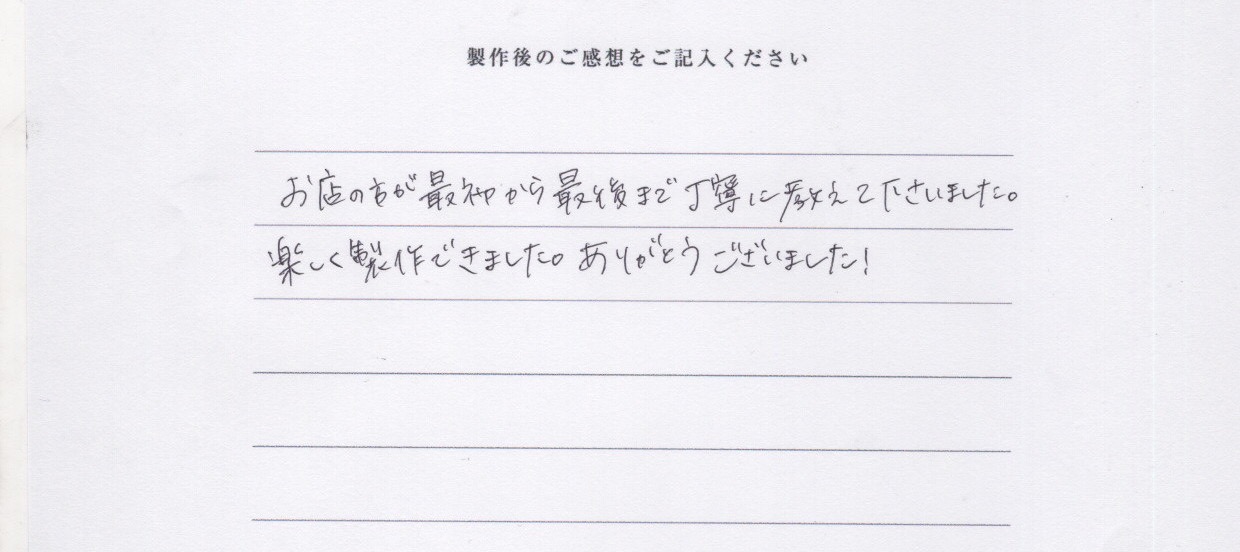 製作後のご感想をご記入ください
お店の方が最初から最後まで丁寧に教えて下さいました。
楽しく製作できました。ありがとうございました!